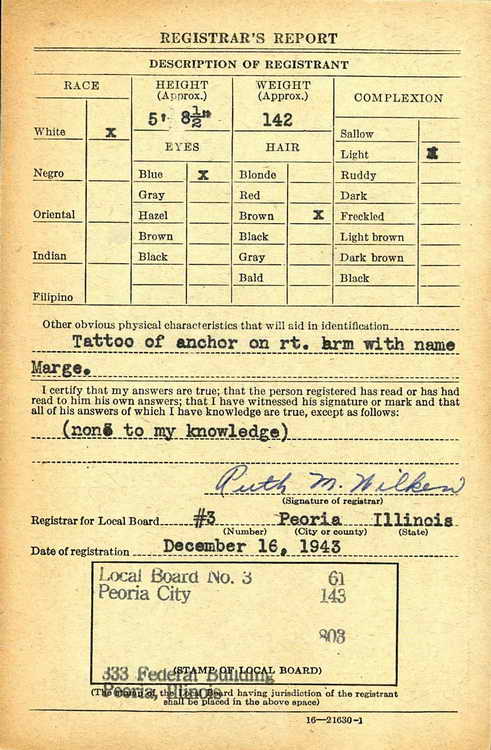 REGISTRAR'S REPORT
DESCRIPTION OF REGISTRANT
RACE
HEIGHT (Approx.)
WEIGHT (Approx.)
COMPLEXION
5' 8½"
142
White X
EYES
HAIR
Sallow
Light X
Negro
Blue X
Blonde
Ruddy
Gray
Red
Dark
Oriental
Hazel
Brown X
Freckled
Brown
Black
Light brown
Indian
Black
Gray
Dark brown
Bald
Black
Filipino
Other obvious physical characteristics that will aid in identification
Tattoo of anchor on rt. arm with name
Marge.
I certify that my answers are true; that the person registered has read or has had
read to him his own answers; that I have witnessed his signature or mark and that
all of his answers of which I have knowledge are true, except as follows:
(none to my knowledge)
Ruth M. Wilken
(Signature of registrar)
Registrar for Local Board #3 Peoria Illinois
(Number) (City or county) (State)
Date of registration December 16, 1943
Local Board No. 3 61
Peoria City 143
803
333 Federal Building
(STAMP OF LOCAL BOARD)
Peoria, Illinois
(The stamp of the Local Board having jurisdiction of the registrant
shall be placed in the above space)
16—21630-1